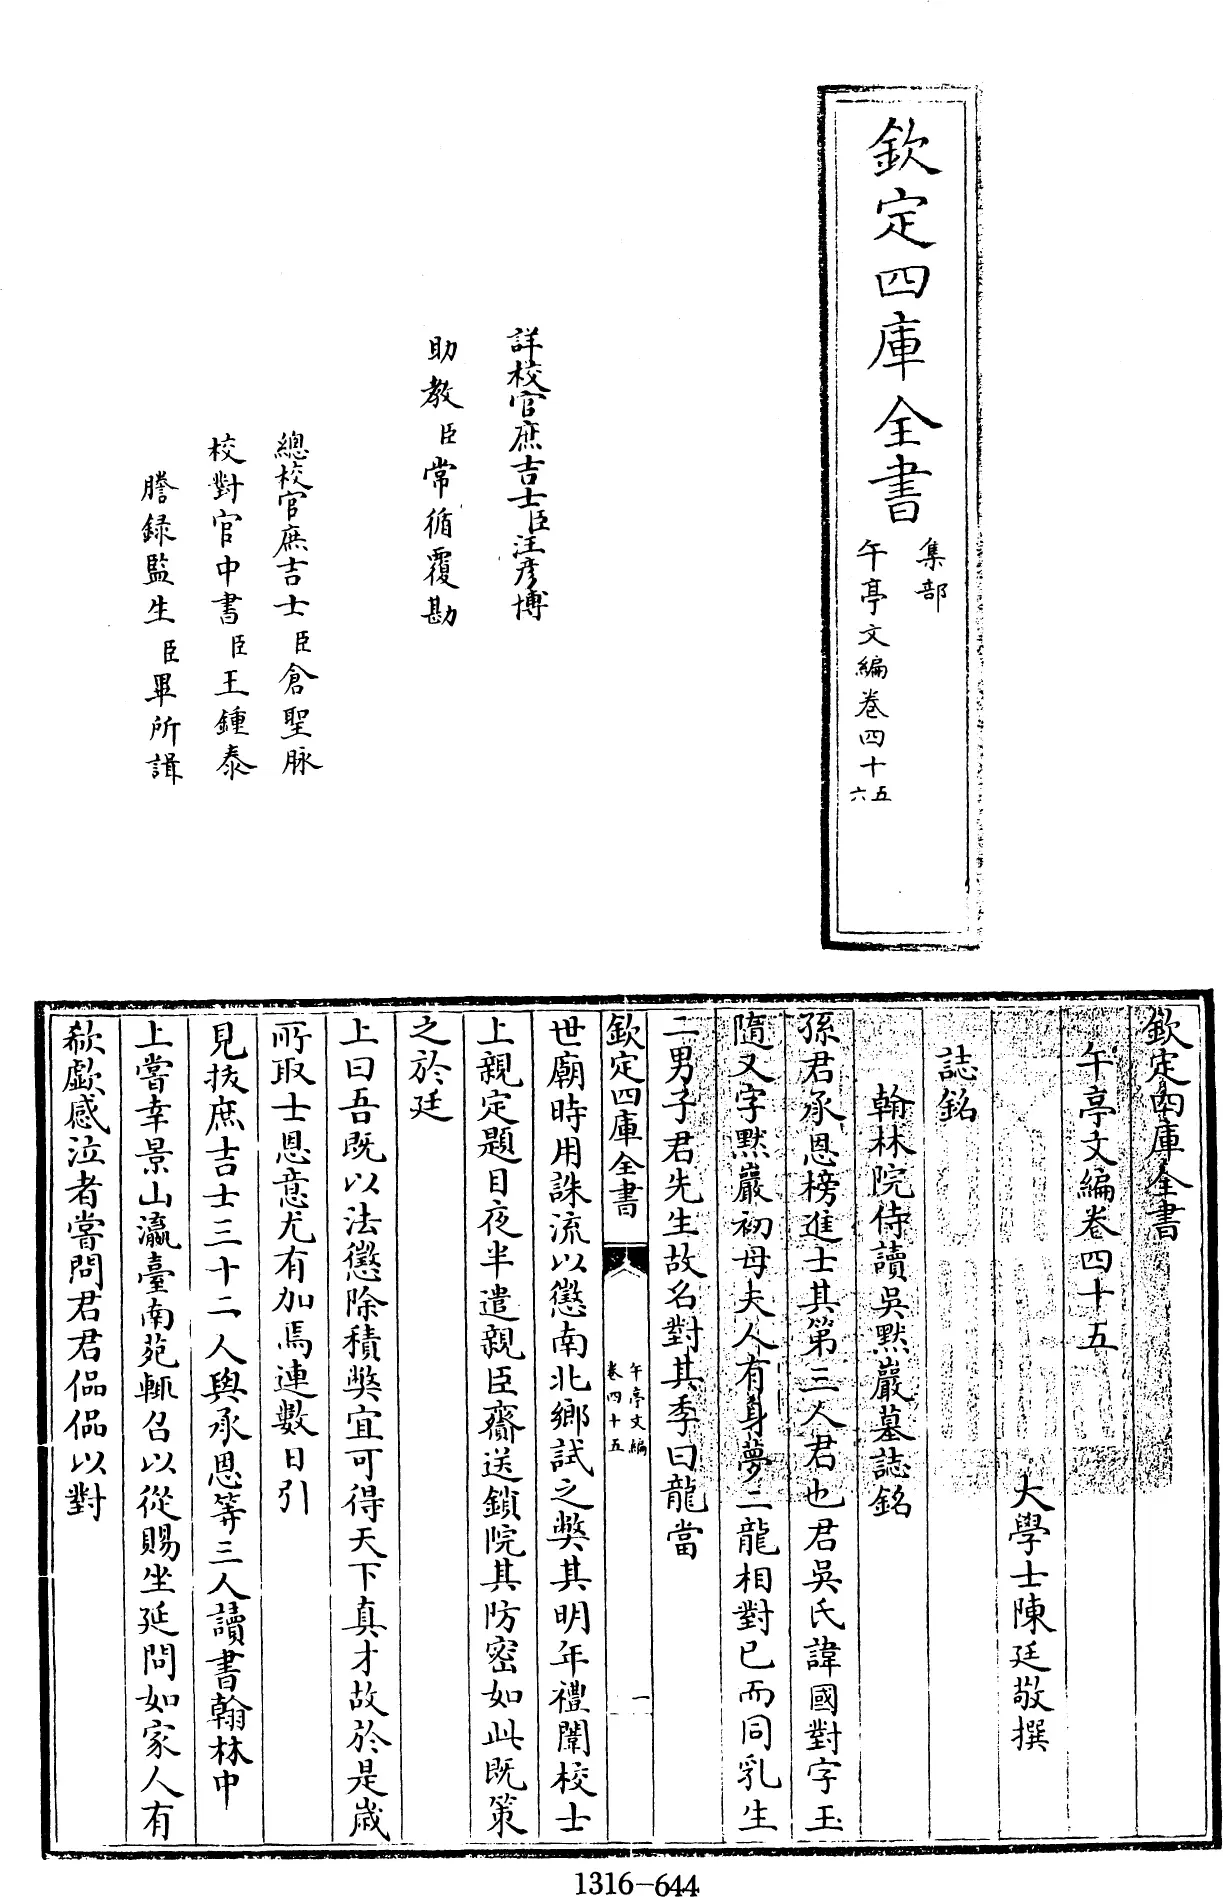 欽定四庫全書
集部
午亭文編卷四十五
六
詳校官庶吉士臣汪彥博
助教臣常循覆勘
總校官庶吉士臣倉聖脉
校對官中書臣王鍾泰
謄録監生臣畢所諿
欽定四庫全書
午亭文編卷四十五
大學士陳廷敬撰
誌銘
翰林院侍讀吳黙巖墓誌銘
孫君承恩榜進士其第三人君也君吳氏諱國對字玉
隨又字黙巖初母夫人有身夢二龍相對已而同乳生
二男子君先生故名對其季曰龍當
欽定四庫全書
午亭文編
卷四十五
一
世廟時用誅流以懲南北鄉試之弊其明年禮闈校士
上親定題目夜半遣親臣齎送鎖院其防密如此既策
之於廷
上曰吾既以法懲除積弊宜可得天下真才故於是歲
所取士恩意尤有加焉連數日引
見拔庶吉士三十二人與承恩等三人讀書翰林中
上嘗幸景山瀛臺南苑輒召以從賜坐延問如家人有
欷歔感泣者嘗問君君偘偘以對
1316-644